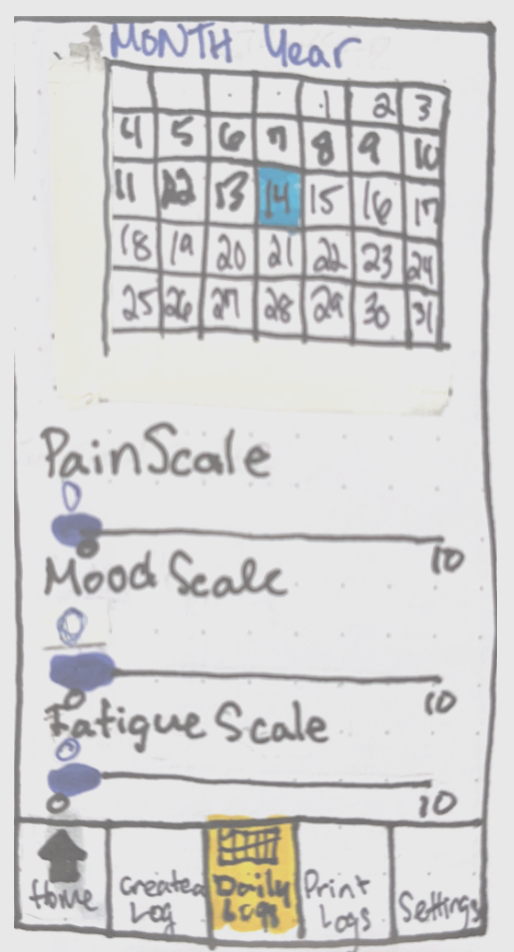 MONTH Year
1 2 3
4 5 6 7 8 9 10
11 12 13 14 15 16 17
18 19 20 21 22 23 24
25 26 27 28 29 30 31
Pain Scale
0
0 10
Mood Scale
0
0 10
Fatigue Scale
0
0 10
Home Create a Log Daily Logs Print Logs Settings